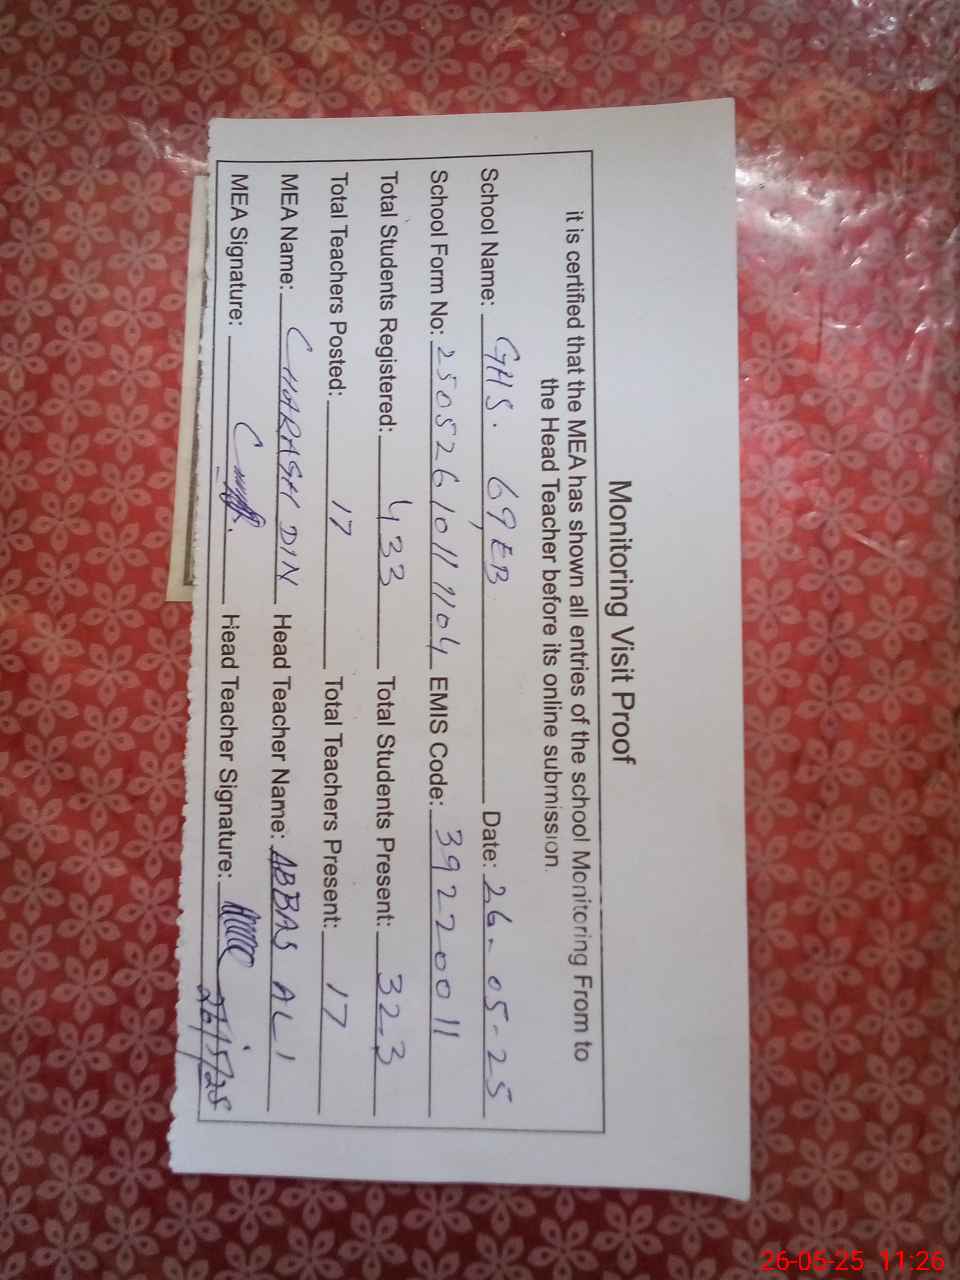 Monitoring Visit Proof
it is certified that the MEA has shown all entries of the school Monitoring From to
the Head Teacher before its online submission.
School Name: GHS. 69, EB Date: 26-05-25
School Form No: 25052610111104 EMIS Code: 39220011
Total Students Registered: 433 Total Students Present: 323
Total Teachers Posted: 17 Total Teachers Present: 17
MEA Name: CHARAGH DIN Head Teacher Name: ABBAS ALI
MEA Signature: Head Teacher Signature:
26/5/25
26-05-25 11:26